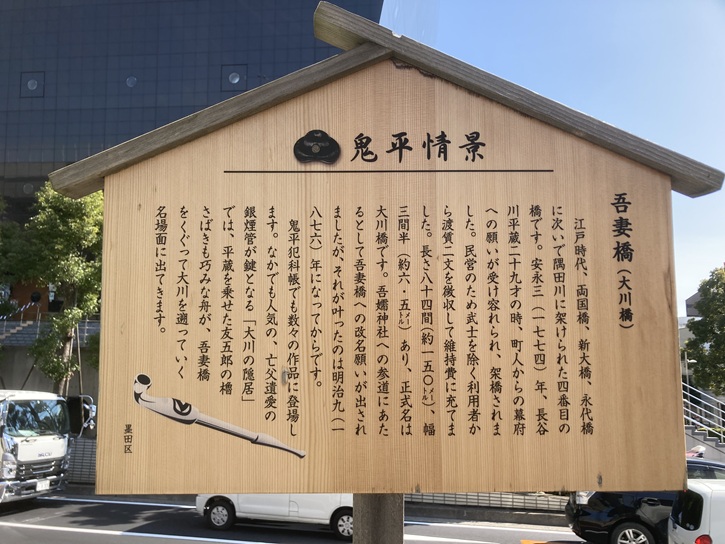 鬼平情景
吾妻橋（大川橋）
江戸時代、両国橋、新大橋、永代橋
に次いで隅田川に架けられた四番目の
橋です。安永三（一七七四）年、長谷
川平蔵二十九才の時、町人からの幕府
への願いが受け容れられ、架橋されま
した。民営のため武士を除く利用者か
ら渡賃二文を徴収して維持費に充てま
した。長さ八十四間（約一五〇㍍）、幅
三間半（約六・五㍍）あり、正式名は
大川橋です。吾嬬神社への参道にあた
るとして吾妻橋への改名願いが出され
ましたが、それが叶ったのは明治九（一
八七六）年になってからです。
鬼平犯科帳でも数々の作品に登場し
ます。なかでも人気の、亡父遺愛の
銀煙管が鍵となる「大川の隠居」
では、平蔵を乗せた友五郎の櫓
さばきも巧みな舟が、吾妻橋
をくぐって大川を遡っていく
名場面に出てきます。
墨田区